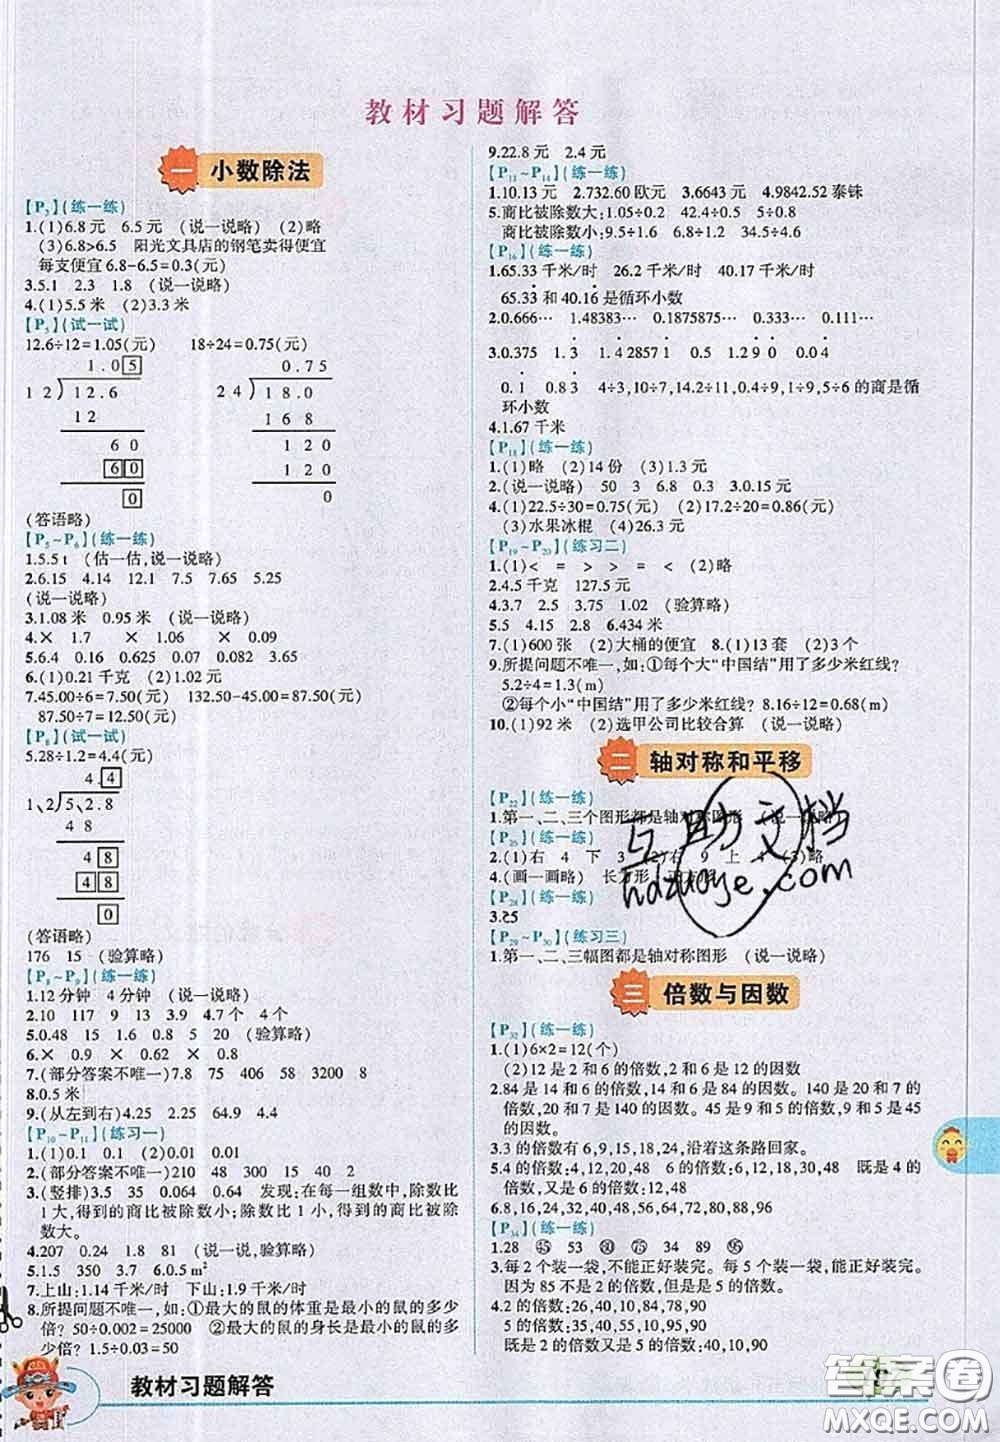 教材习题解答
一 小数除法
【P3】(练一练)
1.(1)6.8元 6.5元 (说一说略) (2)略
(3)6.8>6.5 阳光文具店的钢笔卖得便宜
每支便宜6.8-6.5=0.3(元)
3.5.1 2.3 1.8 (说一说略)
4.(1)5.5米 (2)3.3米
【P5】(试一试)
12.6÷12=1.05(元) 18÷24=0.75(元)
1.05 0.75
12 12.6 24 18.0
12 168
60 120
60 120
0 0
(答语略)
【P5~P6】(练一练)
1.5.5t (估一估,说一说略)
2.6.15 4.14 12.1 7.5 7.65 5.25
(说一说略)
3.1.08米 0.95米 (说一说略)
4.× 1.7 × 1.06 × 0.09
5.6.4 0.16 0.45 0.16 0.34
6.(1)0.21千克 (2)1.02元
7.45.00÷6=7.50(元) 132.50-45.00=87.50(元)
87.50÷7=12.50(元)
【P8】(试一试)
5.28÷1.2=4.4(元)
4.4
1.2 5.2.8
48
48
48
0
(答语略)
176 15 (验算略)
【P8~P9】(练一练)
1.12分钟 4分钟 (说一说略)
2.10 117 9 13 3.9 4.7个 4个
5.0.48 15 9 0.8 5 20 (验算略)
6.× 0.9 × 0.62 × 0.8
7.(部分答案不唯一)7.8 75 408 58 3200 8
8.0.5米
9.(从左到右)4.25 2.25 64.9 4.4
【P10~P11】(练习一)
1.(1)0.1 0.1 (2)0.01 0.01
2.(部分答案不唯一)210 48 300 15 40
3.(竖排)3.5 35 0.064 0.64 发现:在每一组数中,除数比
1大,得到的商比被除数小;除数比1小,得到的商比被除
数大。
4.207 0.24 1.8 81 (说一说,验算略)
5.1.5 350 3.7 6.0.5m²
7.上山:1.14千米/时 下山:1.9千米/时
8.所提问题不唯一,如:①最大的鼠的体重是最小的鼠的多少
倍?50÷0.002=25000 ②最大的鼠的身长是最小的鼠的多
少倍?1.5÷0.03=50
教材习题解答
9.22.8元 2.4元
【P11~P14】(练一练)
1.10.13元 2.732.60欧元 3.6643元 4.9842.52泰铢
5.商比被除数大:1.05÷0.2 42.4÷0.5 5÷0.8
商比被除数小:9.5÷1.6 6.8÷1.2 34.5÷4.6
【P16】(练一练)
1.65.33千米/时 26.2千米/时 40.17千米/时
65.33和40.16是循环小数
2.0.666… 1.48383… 0.1875875… 0.333… 0.111…
3.0.375 1.3̇ 1.4̇28571̇ 0.5 1.29̇0̇ 0.04̇
0.1̇ 0.83̇ 4÷3,10÷7,14.2÷11,0.4÷9,1÷9,5÷6的商是循
环小数
4.1.67千米
【P18】(练一练)
1.(1)略 (2)14份 (3)1.3元
2.(说一说略) 50 3 6.8 3.0.15元
4.(1)22.5÷30=0.75(元) (2)17.2÷20=0.86(元)
(3)水果冰棍 (4)26.3元
【P19~P20】(练习二)
1.(1)< = > > = < (2)略
2.4.5千克 127.5元
4.3.7 2.5 3.75 1.02 (验算略)
5.5 4.15 2.8 6.434米
7.(1)600张 (2)大桶的便宜 8.(1)13套 (2)3个
9.所提问题不唯一,如:①每个大“中国结”用了多少米红线?
5.2÷4=1.3(m)
②每个小“中国结”用了多少米红线? 8.16÷12=0.68(m)
10.(1)92米 (2)选甲公司比较合算 (说一说略)
二 轴对称和平移
【P22】(练一练)
1.第一、二、三个图形都是轴对称图形 (说一说略)
【P26】(练一练)
2.(1)右 4 下 3 (2)右 9 上 4 (3)略
4.(画一画略) 长方形
【P28】(练一练)
3.25
【P29~P30】(练习三)
1.第一、二、三幅图都是轴对称图形 (说一说略)
三 倍数与因数
【P32】(练一练)
1.(1)6×2=12(个)
(2)12是2和6的倍数,2和6是12的因数
2.84是14和6的倍数,14和6是84的因数。140是20和7的
倍数,20和7是140的因数。45是9和5的倍数,9和5是45
的因数。
3.3的倍数有6,9,15,18,24,沿着这条路回家。
5.4的倍数:4,12,20,48 6的倍数:6,12,18,30,48 既是4的
倍数,又是6的倍数:12,48
6.8,16,24,32,40,48,56,64,72,80,88,96
【P34】(练一练)
1.28 45 53 80 75 34 89 95
3.每2个装一袋,不能正好装完。每5个装一袋,能正好装完。
因为85不是2的倍数,但是是5的倍数。
4.2的倍数:26,40,10,84,38,90
5的倍数:35,40,10,85,65,90
既是2的倍数又是5的倍数:40,10,90
互助文档
hdzuoye.com
答案圈
MXQE.COM